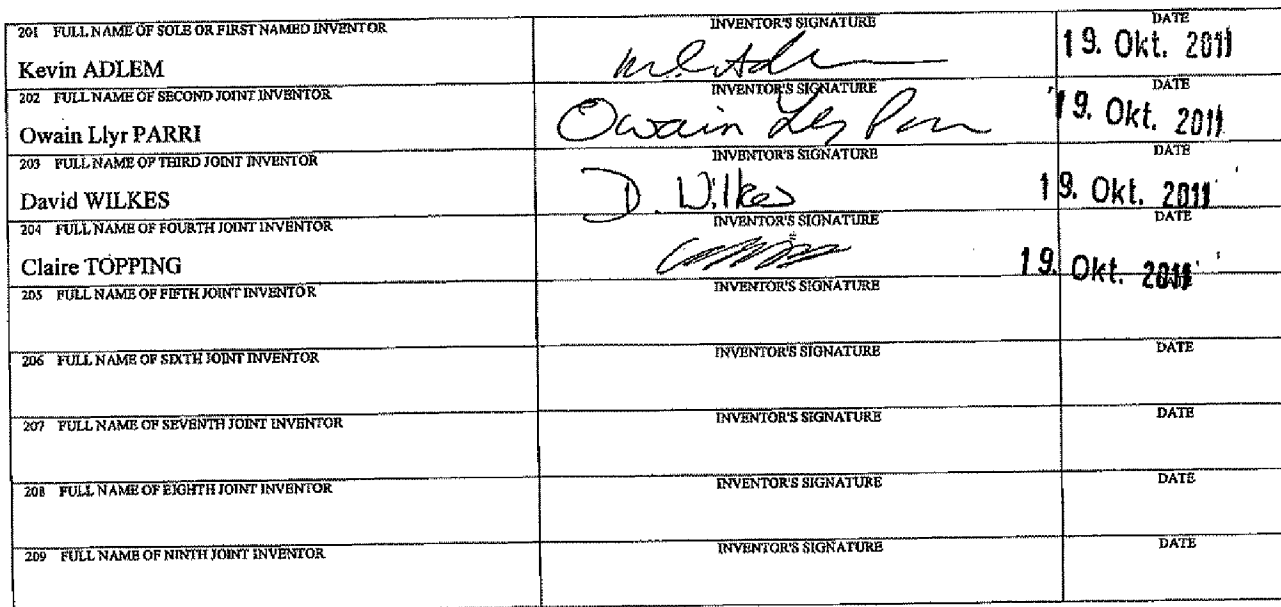 201 FULL NAME OF SOLE OR FIRST NAMED INVENTOR INVENTOR'S SIGNATURE DATE
Kevin ADLEM 19. Okt. 2011
202 FULL NAME OF SECOND JOINT INVENTOR INVENTOR'S SIGNATURE DATE
Owain Llyr PARRI Owain 19. Okt. 2011
203 FULL NAME OF THIRD JOINT INVENTOR INVENTOR'S SIGNATURE DATE
David WILKES D. Wilkes 19. Okt. 2011
204 FULL NAME OF FOURTH JOINT INVENTOR INVENTOR'S SIGNATURE DATE
Claire TOPPING 19. Okt. 2011
205 FULL NAME OF FIFTH JOINT INVENTOR INVENTOR'S SIGNATURE
206 FULL NAME OF SIXTH JOINT INVENTOR INVENTOR'S SIGNATURE DATE
207 FULL NAME OF SEVENTH JOINT INVENTOR INVENTOR'S SIGNATURE DATE
208 FULL NAME OF EIGHTH JOINT INVENTOR INVENTOR'S SIGNATURE DATE
209 FULL NAME OF NINTH JOINT INVENTOR INVENTOR'S SIGNATURE DATE